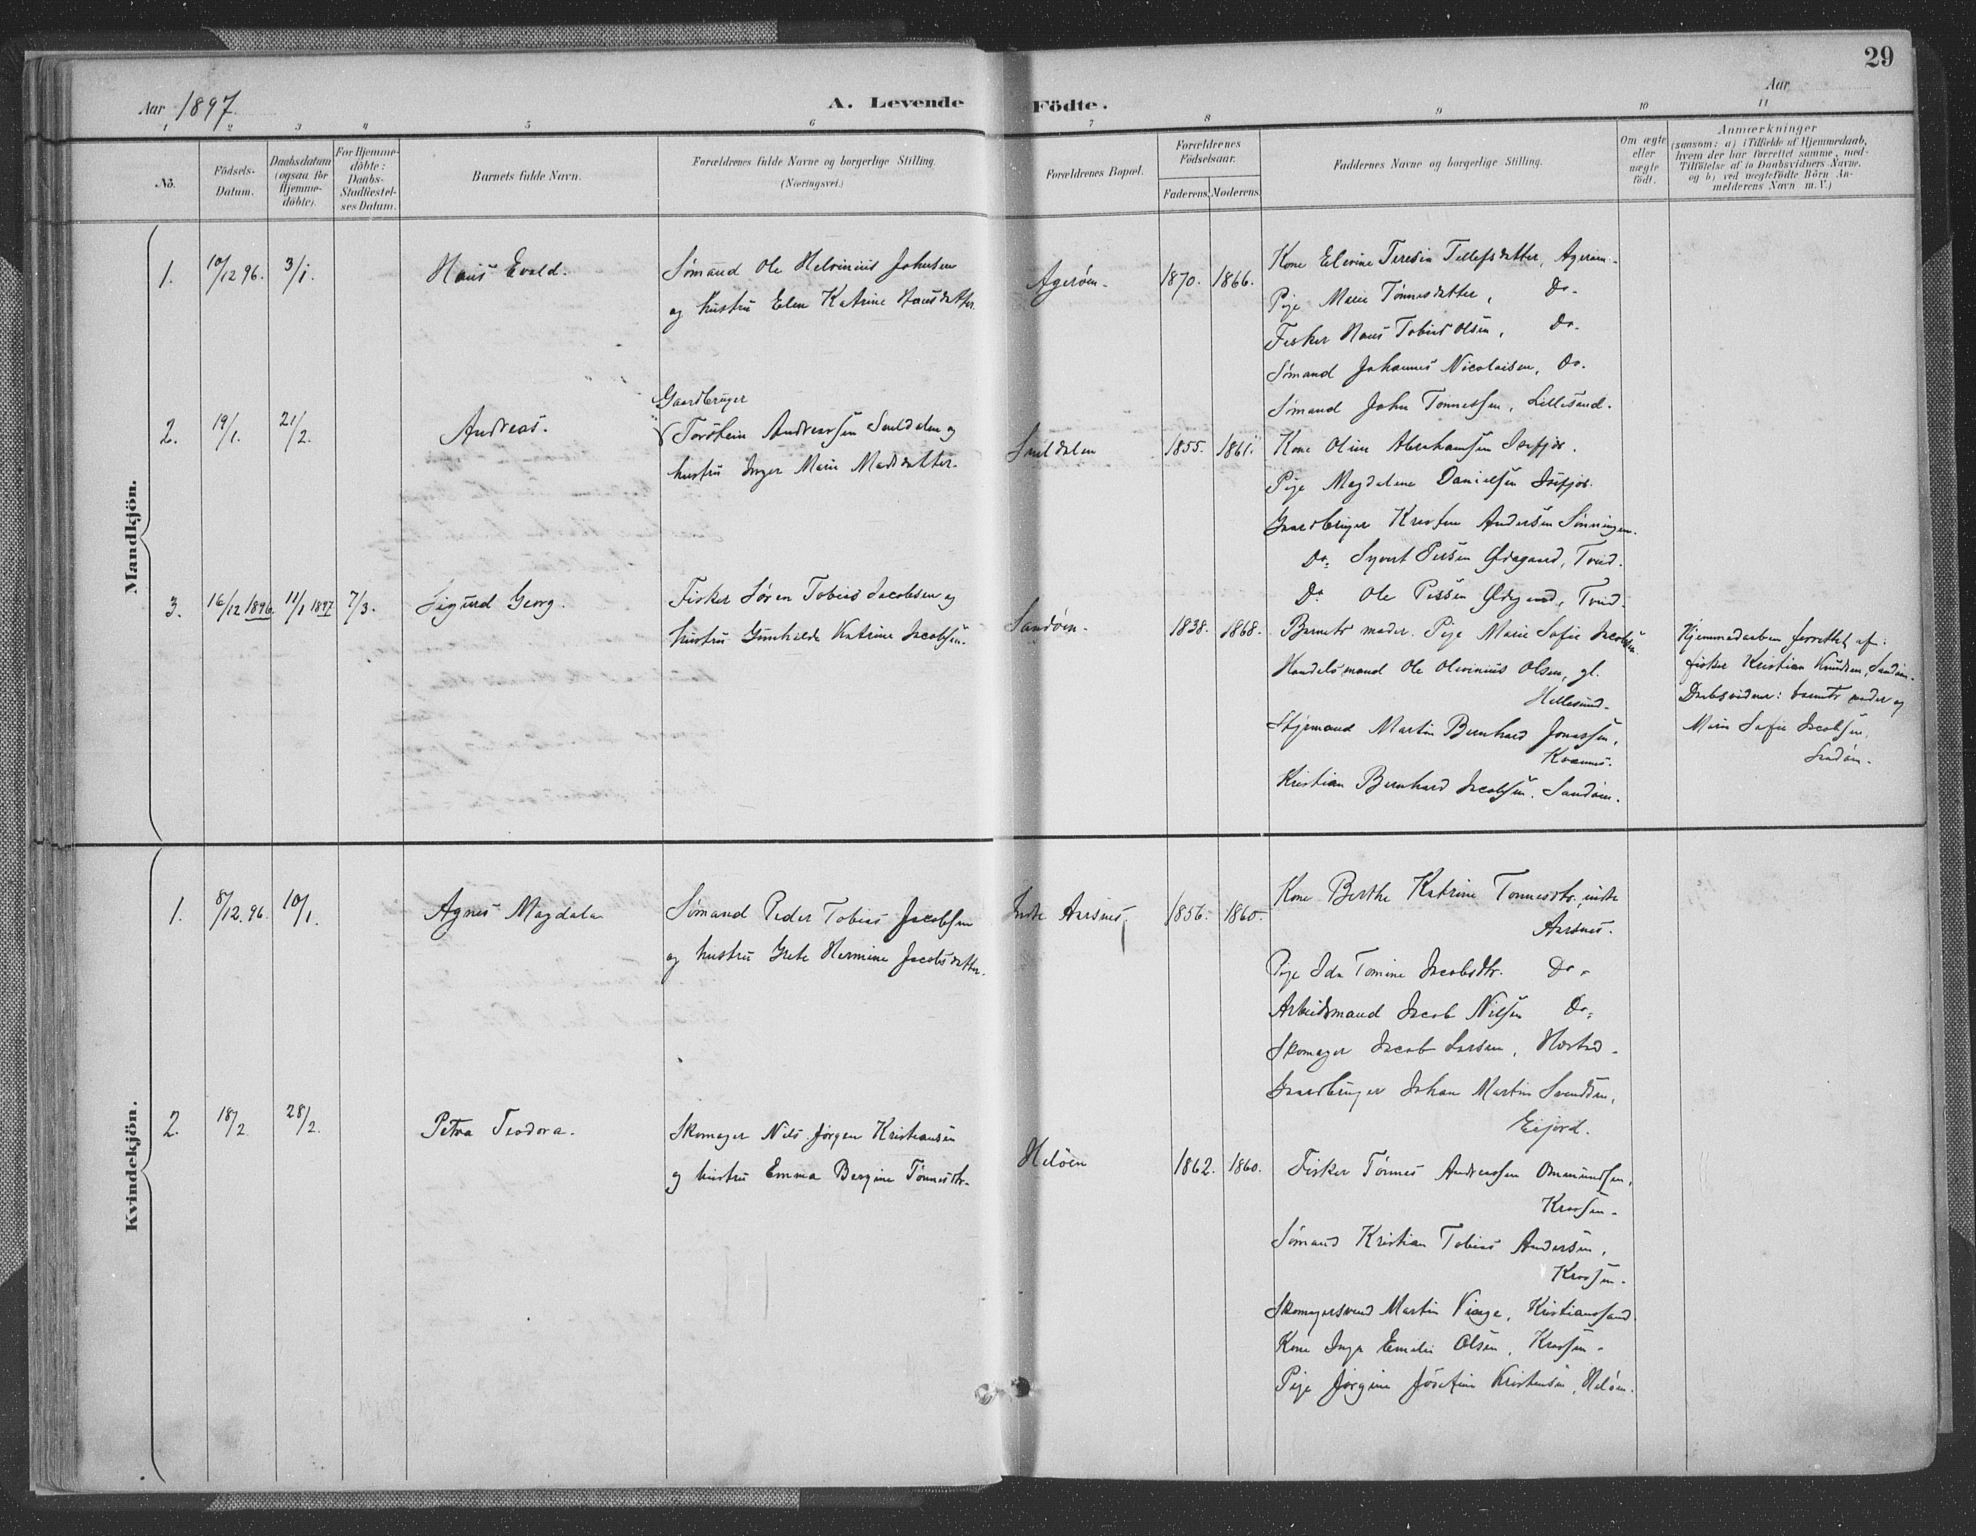 29
Aar 1897
A. Levende Födte.
Aar
1 2 3 4 5 6 7 8 9 10 11
No.
Födsels-Datum.
Daabsdatum (ogsaa for Hjemme-döbte).
For Hjemme-döbte: Daabs-Stadfæstel-ses Datum.
Barnets fulde Navn.
Forældrenes fulde Navne og borgerlige Stilling.
(Næringsvei.)
Forældrenes Bopæl.
Forældrenes Födselsaar.
Faderens. Moderens.
Faddernes Navne og borgerlige Stilling.
Om ægte eller uægte födt.
Anmærkninger
(saasom: a) i Tilfælde af Hjemmedaab,
hvem der har forrettet samme, med
Tilföielse af to Daabsvidners Navne,
og b) ved uægtefödte Börn An-
melderens Navn m. V.)
Mandkjön.
1. 10/12 96. 3/1. Hans Evald.
Sømand Ole Helvinius Johnsen
og hustru Elen Katrine Hansdatter.
Agerøen. 1870. 1866.
Kone Elevine Teresia Tellefsdatter, Ageröen.
Pige Marie Tønnesdatter, Do.
Fisker Hans Tobias Olsen, Do.
Sømand Johannes Nicolaisen, Do.
Sømand John Tønnessen, Lillesand.
2. 19/1. 21/2. Andreas.
Gaardbruger
Torstein Andreassen Suldalen og
hustru Inger Marie Madsdatter.
Suldalen 1855. 1861.
Kone Oline Abrahamsen Isefjær.
Pige Magdalene Danielsen Isefjær.
Gaardbruger Kristen Andersen Sønningen.
Do. Syvert Persen Ødegaard, Tveid.
Do. Ole Persen Ødegaard, Tveid.
3. 16/12 1896. 11/1 1897 7/3. Sigurd Georg.
Fisker Søren Tobias Jacobsen og
hustru Gunhilde Katrine Jacobsen.
Sandøen. 1838. 1868.
Barnets moder. Pige Marie Sofie Jacobsen
Handelsmand Ole Olevinius Olsen, gl.
Hellesund.
Styrmand Martin Bernhard Jonassen,
Kvannes.
Kristian Bernhard Jacobsen. Sandøen.
Hjemmedaaben forrettet af:
fisker Kristian Knudsen, Sandøen.
Daabsvidner: barnets moder og
Marie Sofie Jacobsen,
Sandøen.
Kvindekjön.
1. 8/12. 96. 10/1. Agnes Magdala
Sømand Peder Tobias Jacobsen
og hustru Grete Hermine Jacobsdatter.
Indre Aarsnes, 1856. 1860.
Kone Berthe Katrine Tønnesdtr., indre
Aarsnes.
Pige Ida Tomine Jacobsdtr. Do.
Arbeidsmand Jacob Nilsen Do.
Skomager Jacob Larsen, Hæstad.
Gaardbruger Johan Martin Svendsen,
Eijord.
2. 18/2 28/2. Petra Teodora.
Skomager Nils Jørgen Kristiansen
og hustru Emma Bergine Tønnesdtr.
Heløen 1862. 1860.
Fisker Tønnes Andreassen Ommundsen,
Kraasen.
Sømand Kristian Tobias Andersen,
Kraasen.
Skomagersvend Martin Viege, Kristianssand.
Kone Inga Emelie Olsen, Kraasen.
Pige Jørgine Josefine Kristensen, Heløen.